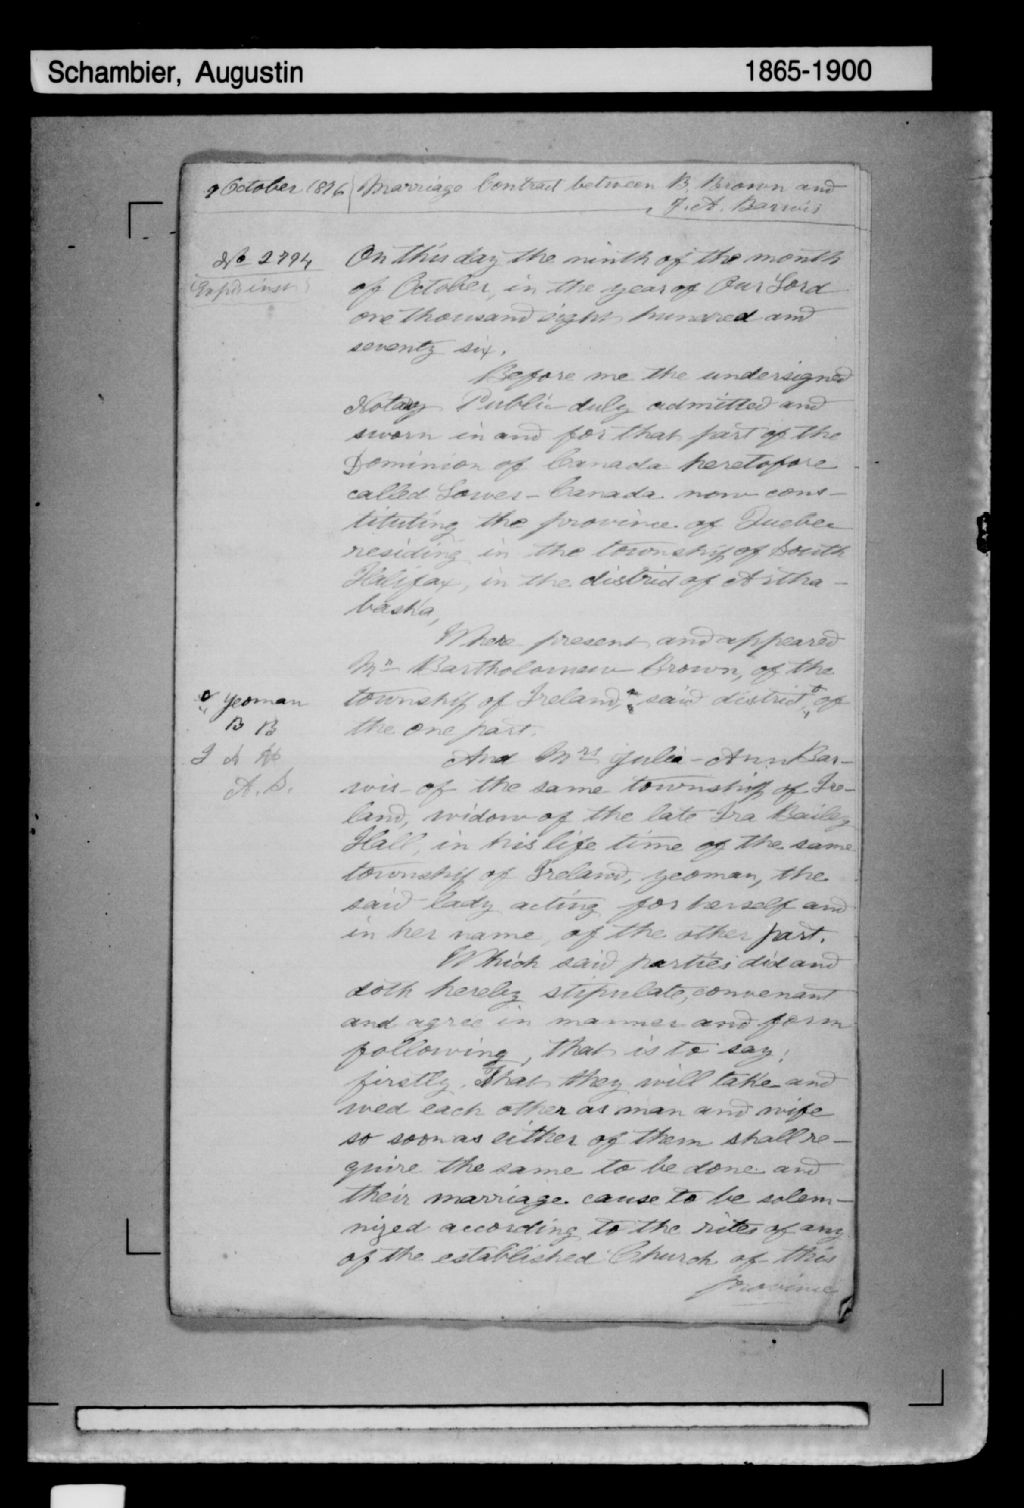 Schambier, Augustin 1865-1900
9 October 1876 Marriage Contract between B. Brown and
J. A. Barwis
No 2794
On this day the ninth of the month
of October, in the year of Our Lord
one thousand eight hundred and
seventy six.
Before me the undersigned
Notary Public duly admitted and
sworn in and for that part of the
Dominion of Canada heretofore
called Lower-Canada now cons-
tituting the province of Quebec
residing in the township of South
Halifax, in the district of Artha-
baska,
Where present and appeared
Mr Bartholomew Brown, of the
yeoman
township of Ireland, said district of
B B
the one part.
J A H
And Mrs Julia-Ann Bar-
A. S.
wis of the same township of Ire-
land, widow of the late Ira Bailey
Hall, in his life time of the same
township of Ireland, yeoman, the
said lady acting for herself and
in her name, of the other part.
Which said parties did and
doth hereby stipulate, convenant
and agree in manner and form
following, that is to say;
firstly. That they will take and
wed each other as man and wife
so soon as either of them shall re-
quire the same to be done and
their marriage cause to be solem-
nized according to the rites of any
of the established Church of this
province